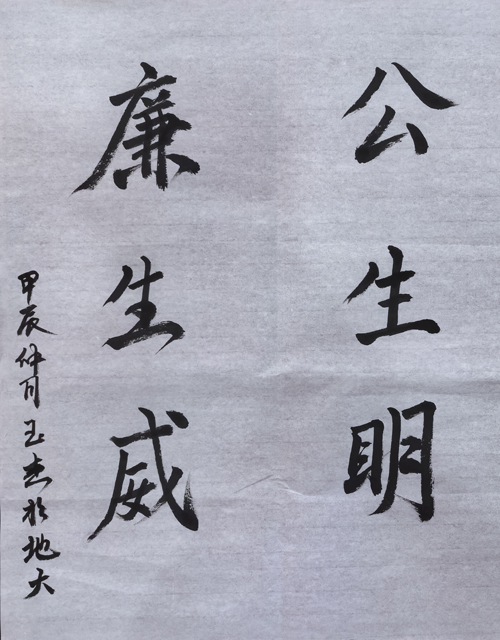 公生明
廉生威
甲辰仲月玉杰於地大